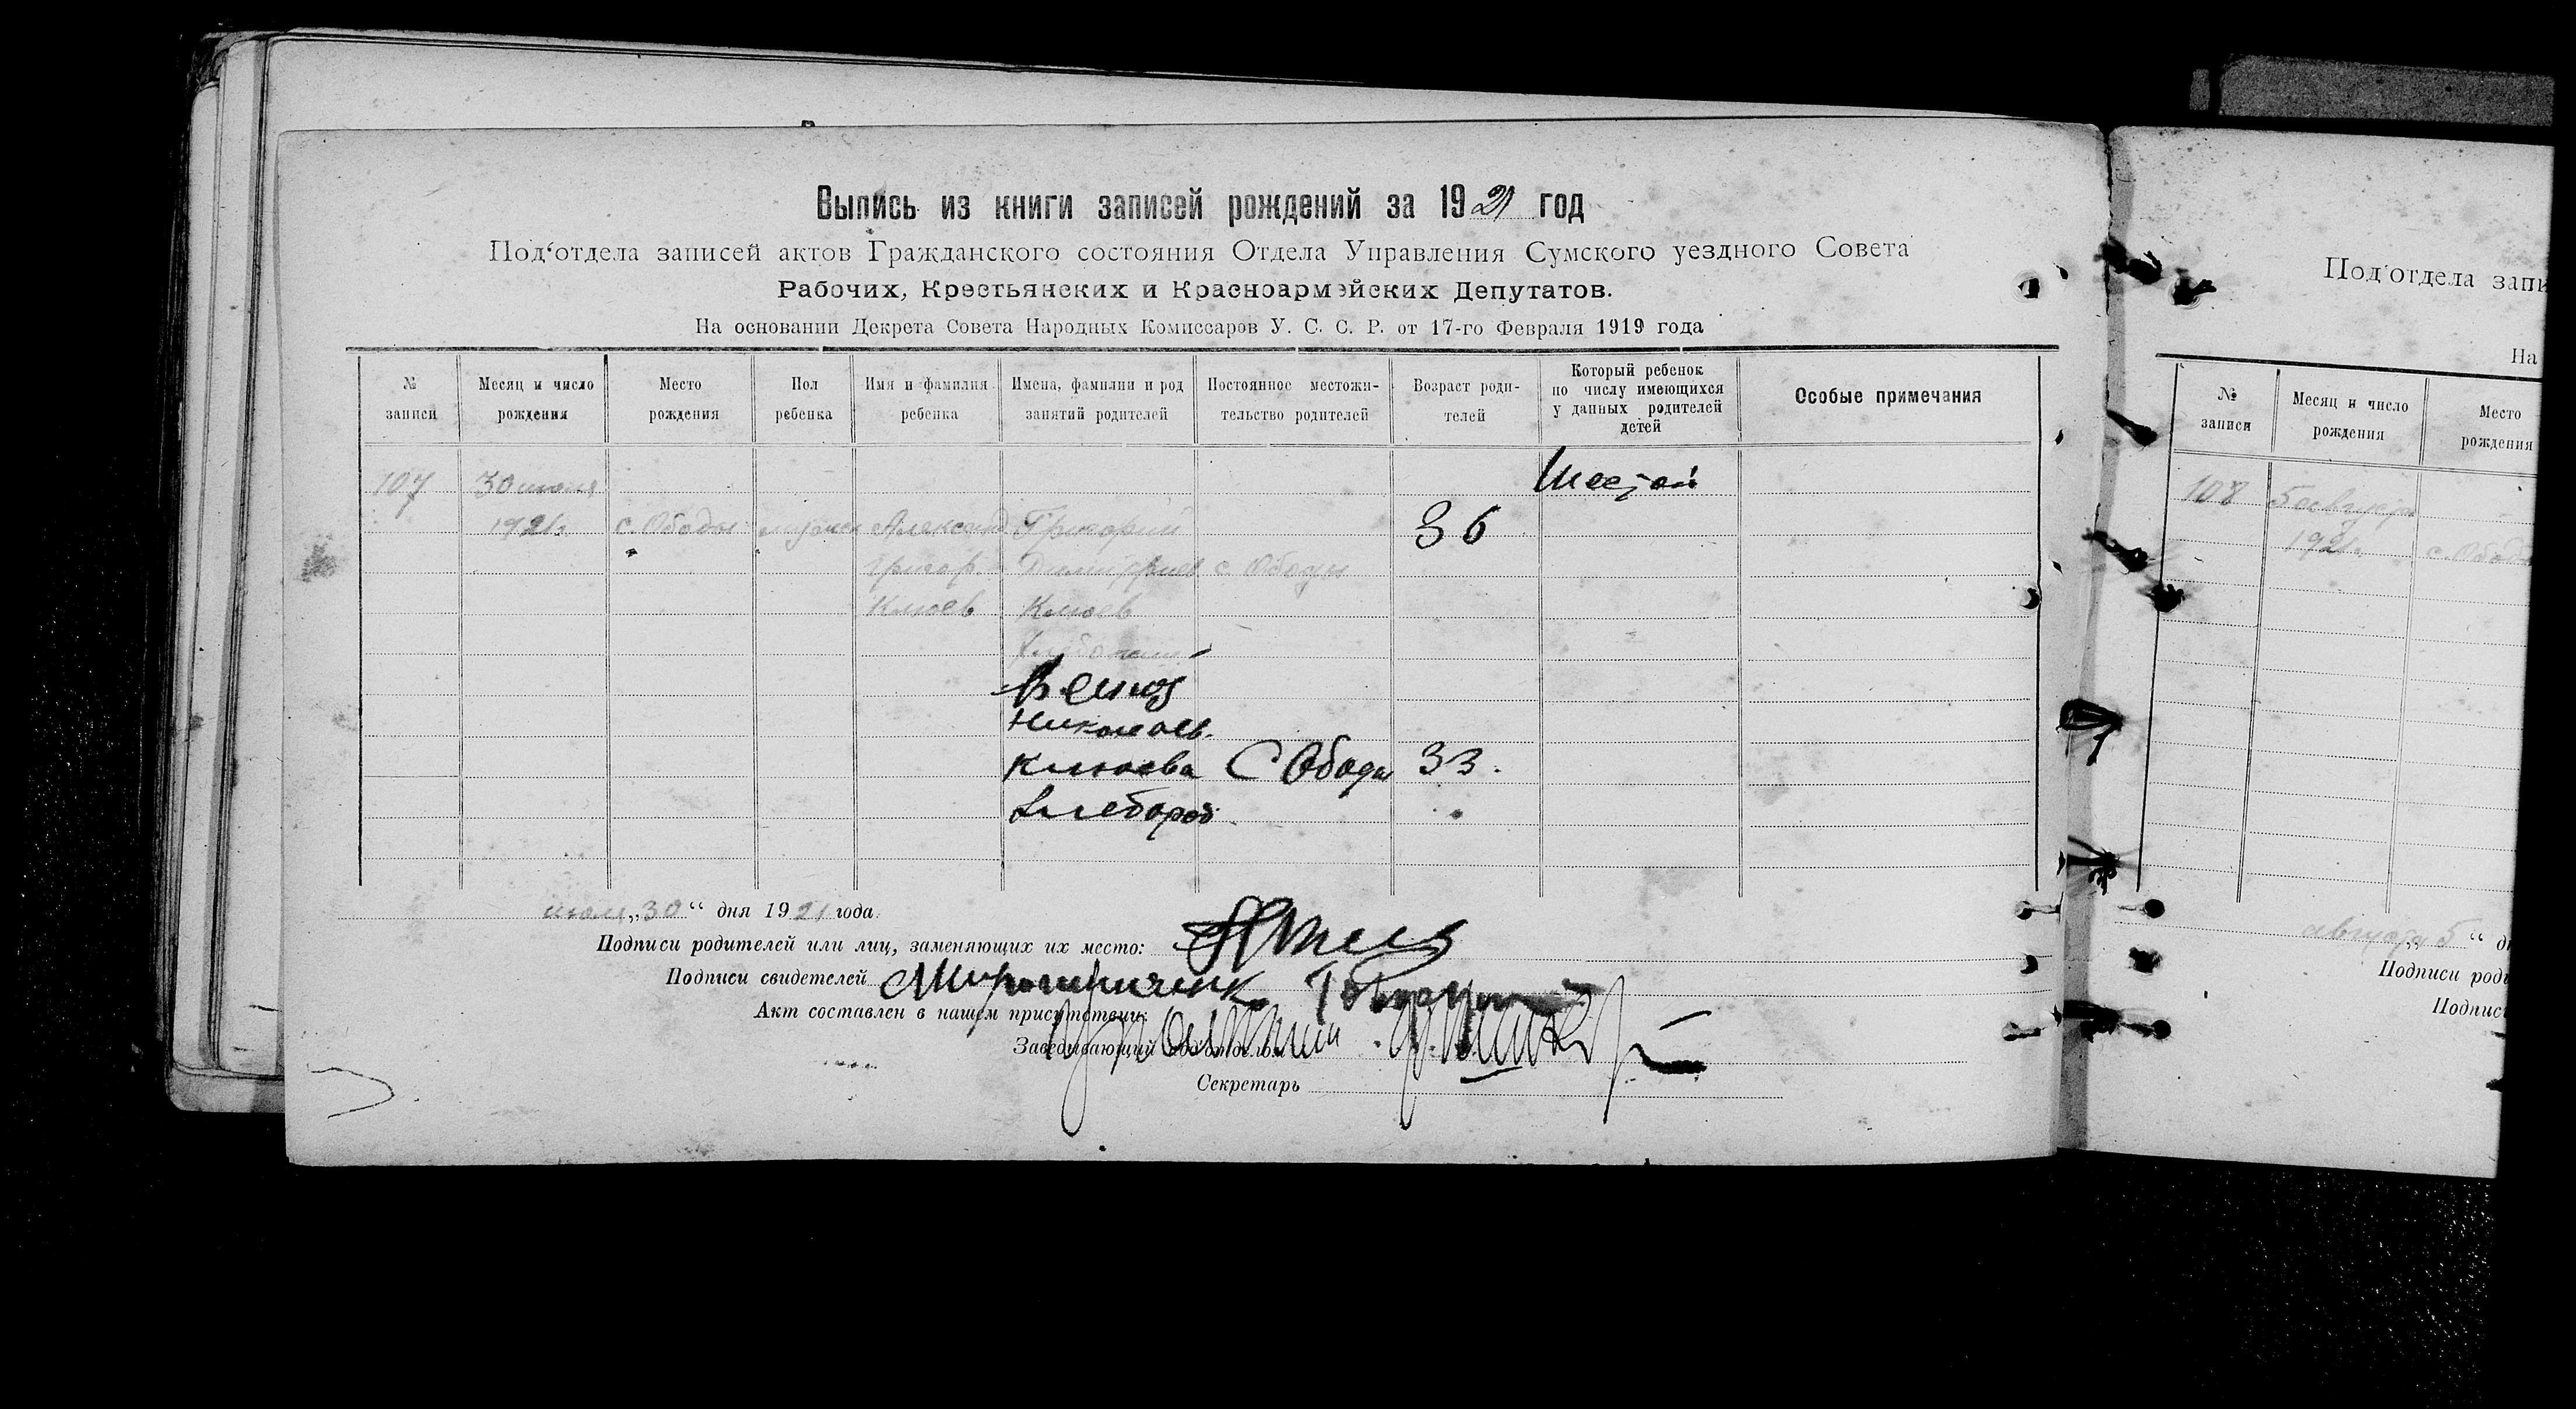 Выпись из книги записей рождений за 1921 год
Под‘отдела записей актов Гражданского состояния Отдела Управления Сумского уездного Совета
Рабочих, Крестьянских и Красноармейских Депутатов.
На основании Декрета Совета Народных Комиссаров У. С. С. Р. от 17-го Февраля 1919 года
№ записи
Месяц и число рождения
Место рождения
Пол ребенка
Имя и фамилия ребенка
Имена, фамилии и род занятий родителей
Постоянное местожительство родителей
Возраст родителей
Который ребенок по числу имеющихся у данных родителей детей
Особые примечания
107 30 июля Шестой
1921г с. Ободы мужск Александ Григорий 36
Григор. Димитриев с. Ободы
Клюев Клюев
Николаев.
Клюева С Ободы 33.
Хлебороб.
июля „30“ дня 1921 года.
Подписи родителей или лиц, заменяющих их место:
Подписи свидетелей Мирошниченко
Акт составлен в нашем присутствии:
Заведывающий
Секретарь
Под‘отдела запи
На
№ записи
Месяц и число рождения
Место рождения
108 5 августа
1921. с. Ободы
августа „5“ д
Подписи род
Подпис